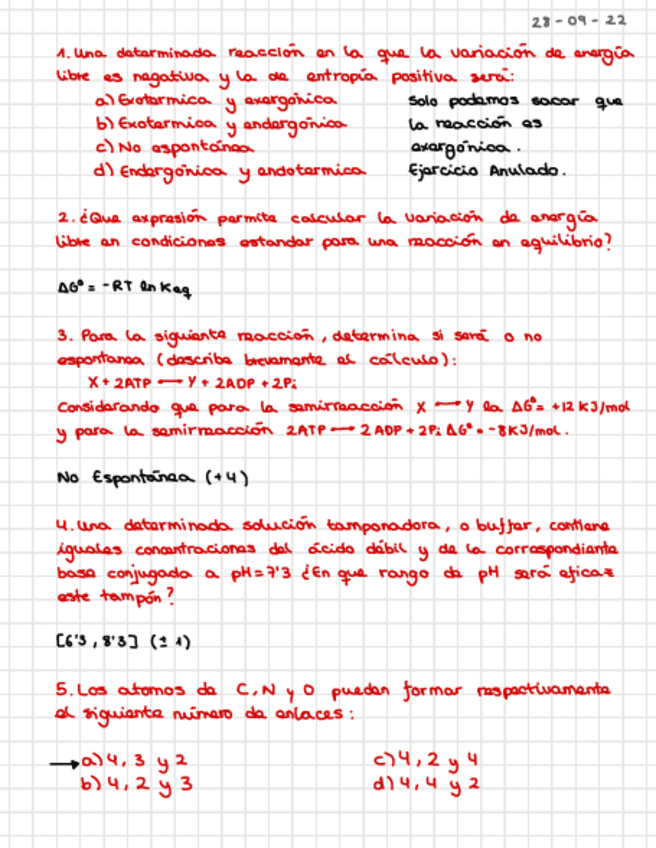 28-09-22
1. Una determinada reacción en la que la variación de energía
libre es negativa y la de entropía positiva será:
a) Exotermica y exergónica
b) Exotermica y endergónica
c) No espontánea
d) Endergónica y endotermica
Solo podemos sacar que
la reacción es
exergónica.
Ejercicio Anulado.
2. ¿Que expresión permite calcular la variación de energía
libre en condiciones estandar para una reacción en equilibrio?
ΔG° = -RT ln Keq
3. Para la siguiente reacción, determina si será o no
espontanea (describe brevemente el cálculo):
X + 2ATP → Y + 2ADP + 2Pi
Considerando que para la semirreacción X → Y la ΔG° = +12 KJ/mol
y para la semirreacción 2ATP → 2ADP + 2Pi ΔG° = -8KJ/mol.
No Espontánea (+4)
4. Una determinada solución tamponadora, o buffer, contiene
iguales concentraciones del ácido débil y de la correspondiente
base conjugada a pH=7'3 ¿En que rango de pH será eficaz
este tampón?
[6'3, 8'3] (± 1)
5. Los atomos de C, N y O pueden formar respectivamente
el siguiente número de enlaces:
→ a) 4, 3 y 2
b) 4, 2 y 3
c) 4, 2 y 4
d) 4, 4 y 2